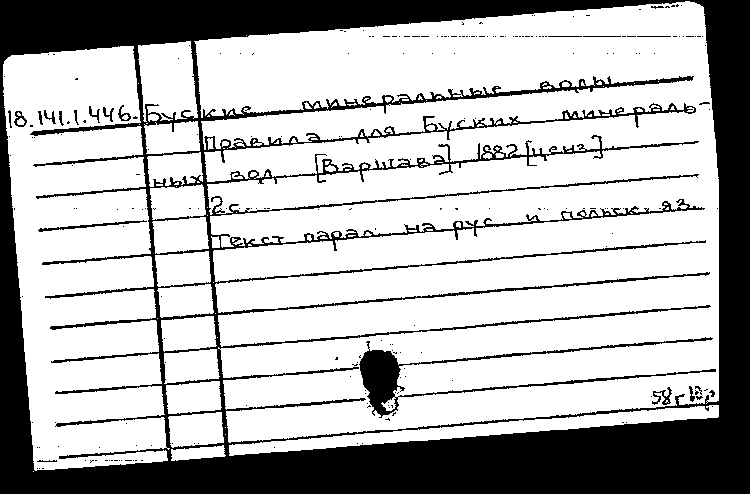 18.141.1.446. Буские минеральные воды
Правила для Буских минераль-
ных вод. [Варшава], 1882 [ценз.].
2 с.
Текст парал. на рус. и польск. яз.
58г